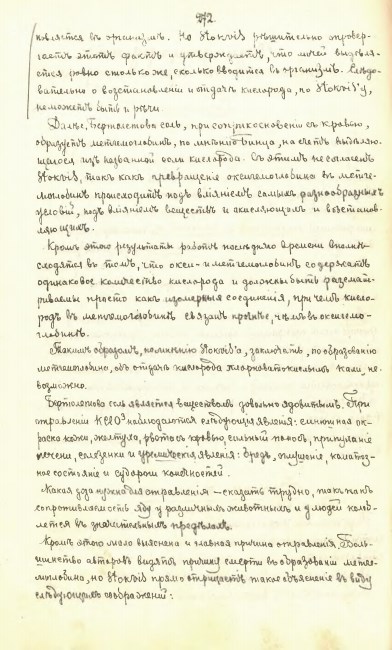 272.
является въ организмъ. Но Stokvis рѣшительно опровер-
гаетъ этотъ фактъ и утверждаетъ, что мочей выдѣля-
ется ровно столько же, сколько вводится въ организмъ. Слѣдо-
вательно о возстановленіи и отдачѣ кислорода, по Stokvis'у,
неможетъ быть и рѣчи.
Далѣе, Бертолетова соль, при соприкосновеніи съ кровью,
образуетъ метгемоглобинъ, по мнѣнію Бинца, на счетъ выдѣляю-
щагося изъ названной соли кислорода. Съ этимъ не согласенъ
Stokvis, такъ какъ превращеніе оксигемоглобина въ метге-
моглобинъ происходитъ подъ вліяніемъ самыхъ разнообразныхъ
условій, подъ вліяніемъ веществъ и окисляющихъ и возстанов-
ляющихъ.
Кромѣ этого результаты работъ послѣдняго времени вполнѣ
сходятся въ томъ, что окси- и метгемоглобинъ содержатъ
одинаковое количество кислорода и должны быть разсмат-
риваемы просто какъ изомерныя соединенія, при чемъ кисло-
родъ въ метгемоглобинѣ связанъ прочнѣе, чѣмъ въ оксигемо-
глобинѣ.
Такимъ образомъ, по мнѣнію Stokvis'a, заключать, по образованію
метгемоглобина, объ отдачѣ кислорода хлорноватокислымъ кали, не-
возможно.
Бертолетова соль является веществомъ довольно ядовитымъ. При
отравленіи KClO³ наблюдаются слѣдующія явленія: синюшная ок-
раска кожи, желтуха, рвота съ кровью, сильный поносъ, припуханіе
печени, селезенки и уремическія явленія: бредъ, оглушеніе, коматоз-
ное состояніе и судороги конечностей.
Какая доза нужна для отравленія — сказать трудно, такъ какъ
сопротивляемость яду у различныхъ животныхъ и у людей колеб-
лется въ значительныхъ предѣлахъ.
Кромѣ этого мало выяснена и главная причина отравленія. Боль-
шинство авторовъ видятъ причину смерти въ образованіи метге-
моглобина, но Stokvis прямо отрицаетъ такое объясненіе въ виду
слѣдующихъ соображеній: